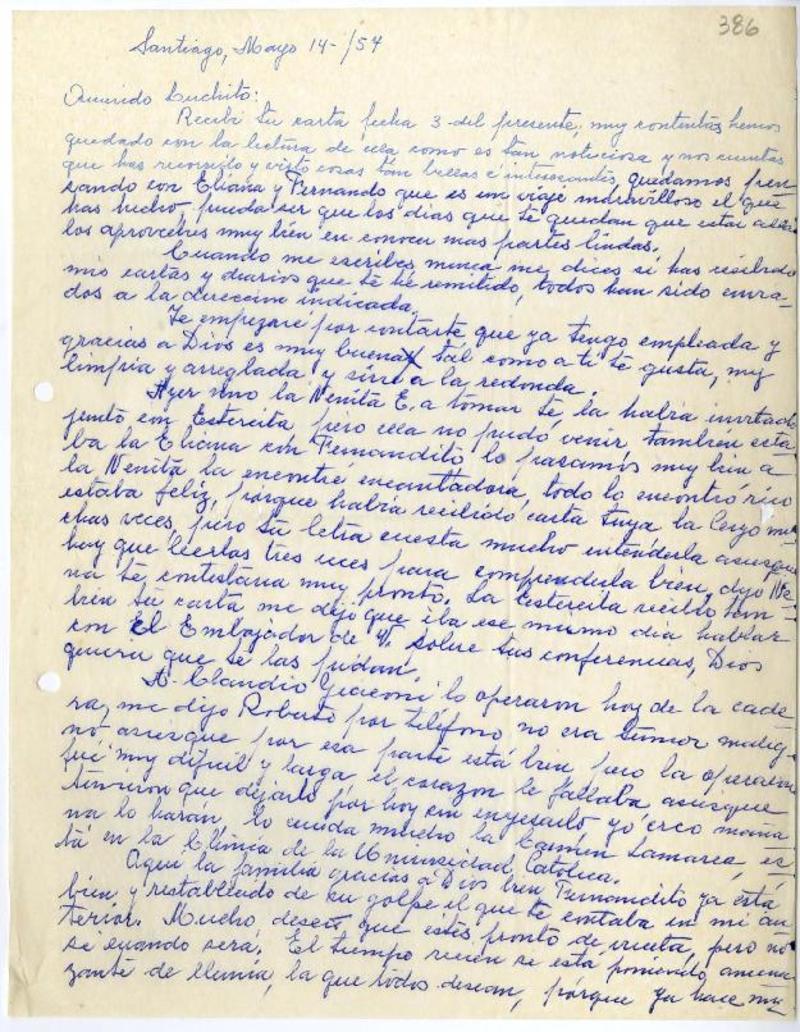 386
Santiago, Mayo 14-/57
Querido Luchito:
Recibí tu carta fecha 3 del presente, muy contentas hemos
quedado con la lectura de ella como es tan noticiosa y nos cuentas
que has recorrido y visto cosas tan bellas e interesantes, quedamos pen-
sando con Eliana y Fernando que es un viaje maravilloso el que
has hecho, pueda ser que los días que te quedan que estar allá
los aproveches muy bien en conocer mas partes lindas.
Cuando me escribes nunca me dices si has recibido
mis cartas y diarios que te he remitido, todos han sido envia-
dos a la dirección indicada.
Te empezaré por contarte que ya tengo empleada y
gracias a Dios es muy buena tal como a ti te gusta, muy
limpia y arreglada y sirve a la redonda.
Ayer vino la Nenita E. a tomar té, la había invitado
junto con Estercita pero ella no pudó venir, también esta-
ba la Eliana con Fernandito lo pasamos muy bien a
la Nenita la encontré encantadora, todo lo encontró rico
estaba feliz, porque había recibido carta tuya la leyo mu-
chas veces, pero tu letra cuesta mucho entenderla asique
hay que leerlas tres veces para comprenderla bien, dijo Ne-
na te contestaria muy pronto. La Estercita recibió tam-
bien tu carta me dijo que iba ese mismo día hablar
con El Embajador de sobre tus conferencias, Dios
quiera que te las pidan.
A Claudio Giaconi lo operaron hoy de la cade-
ra, me dijo Roberto por teléfono no era tumor malig-
no asique por esa parte está bien pero la operación
fué muy dificil y larga el corazon le fallaba asique
tuvieron que dejarlo por hoy sin enyesarlo yó creo maña-
na lo harán, lo cuida mucho la Carmen es-
tá en la Clínica de la Universidad Católica.
Aqui la familia gracias a Dios bien Fernandito ya está
bien y restablecido de su golpe el que te contaba en mi an-
terior. Mucho deseo que estés pronto de vuelta, pero no
sé cuando será. El tiempo recien se está poniendo amena-
zante de lluvia, la que todos desean, pórque ya hace mu-